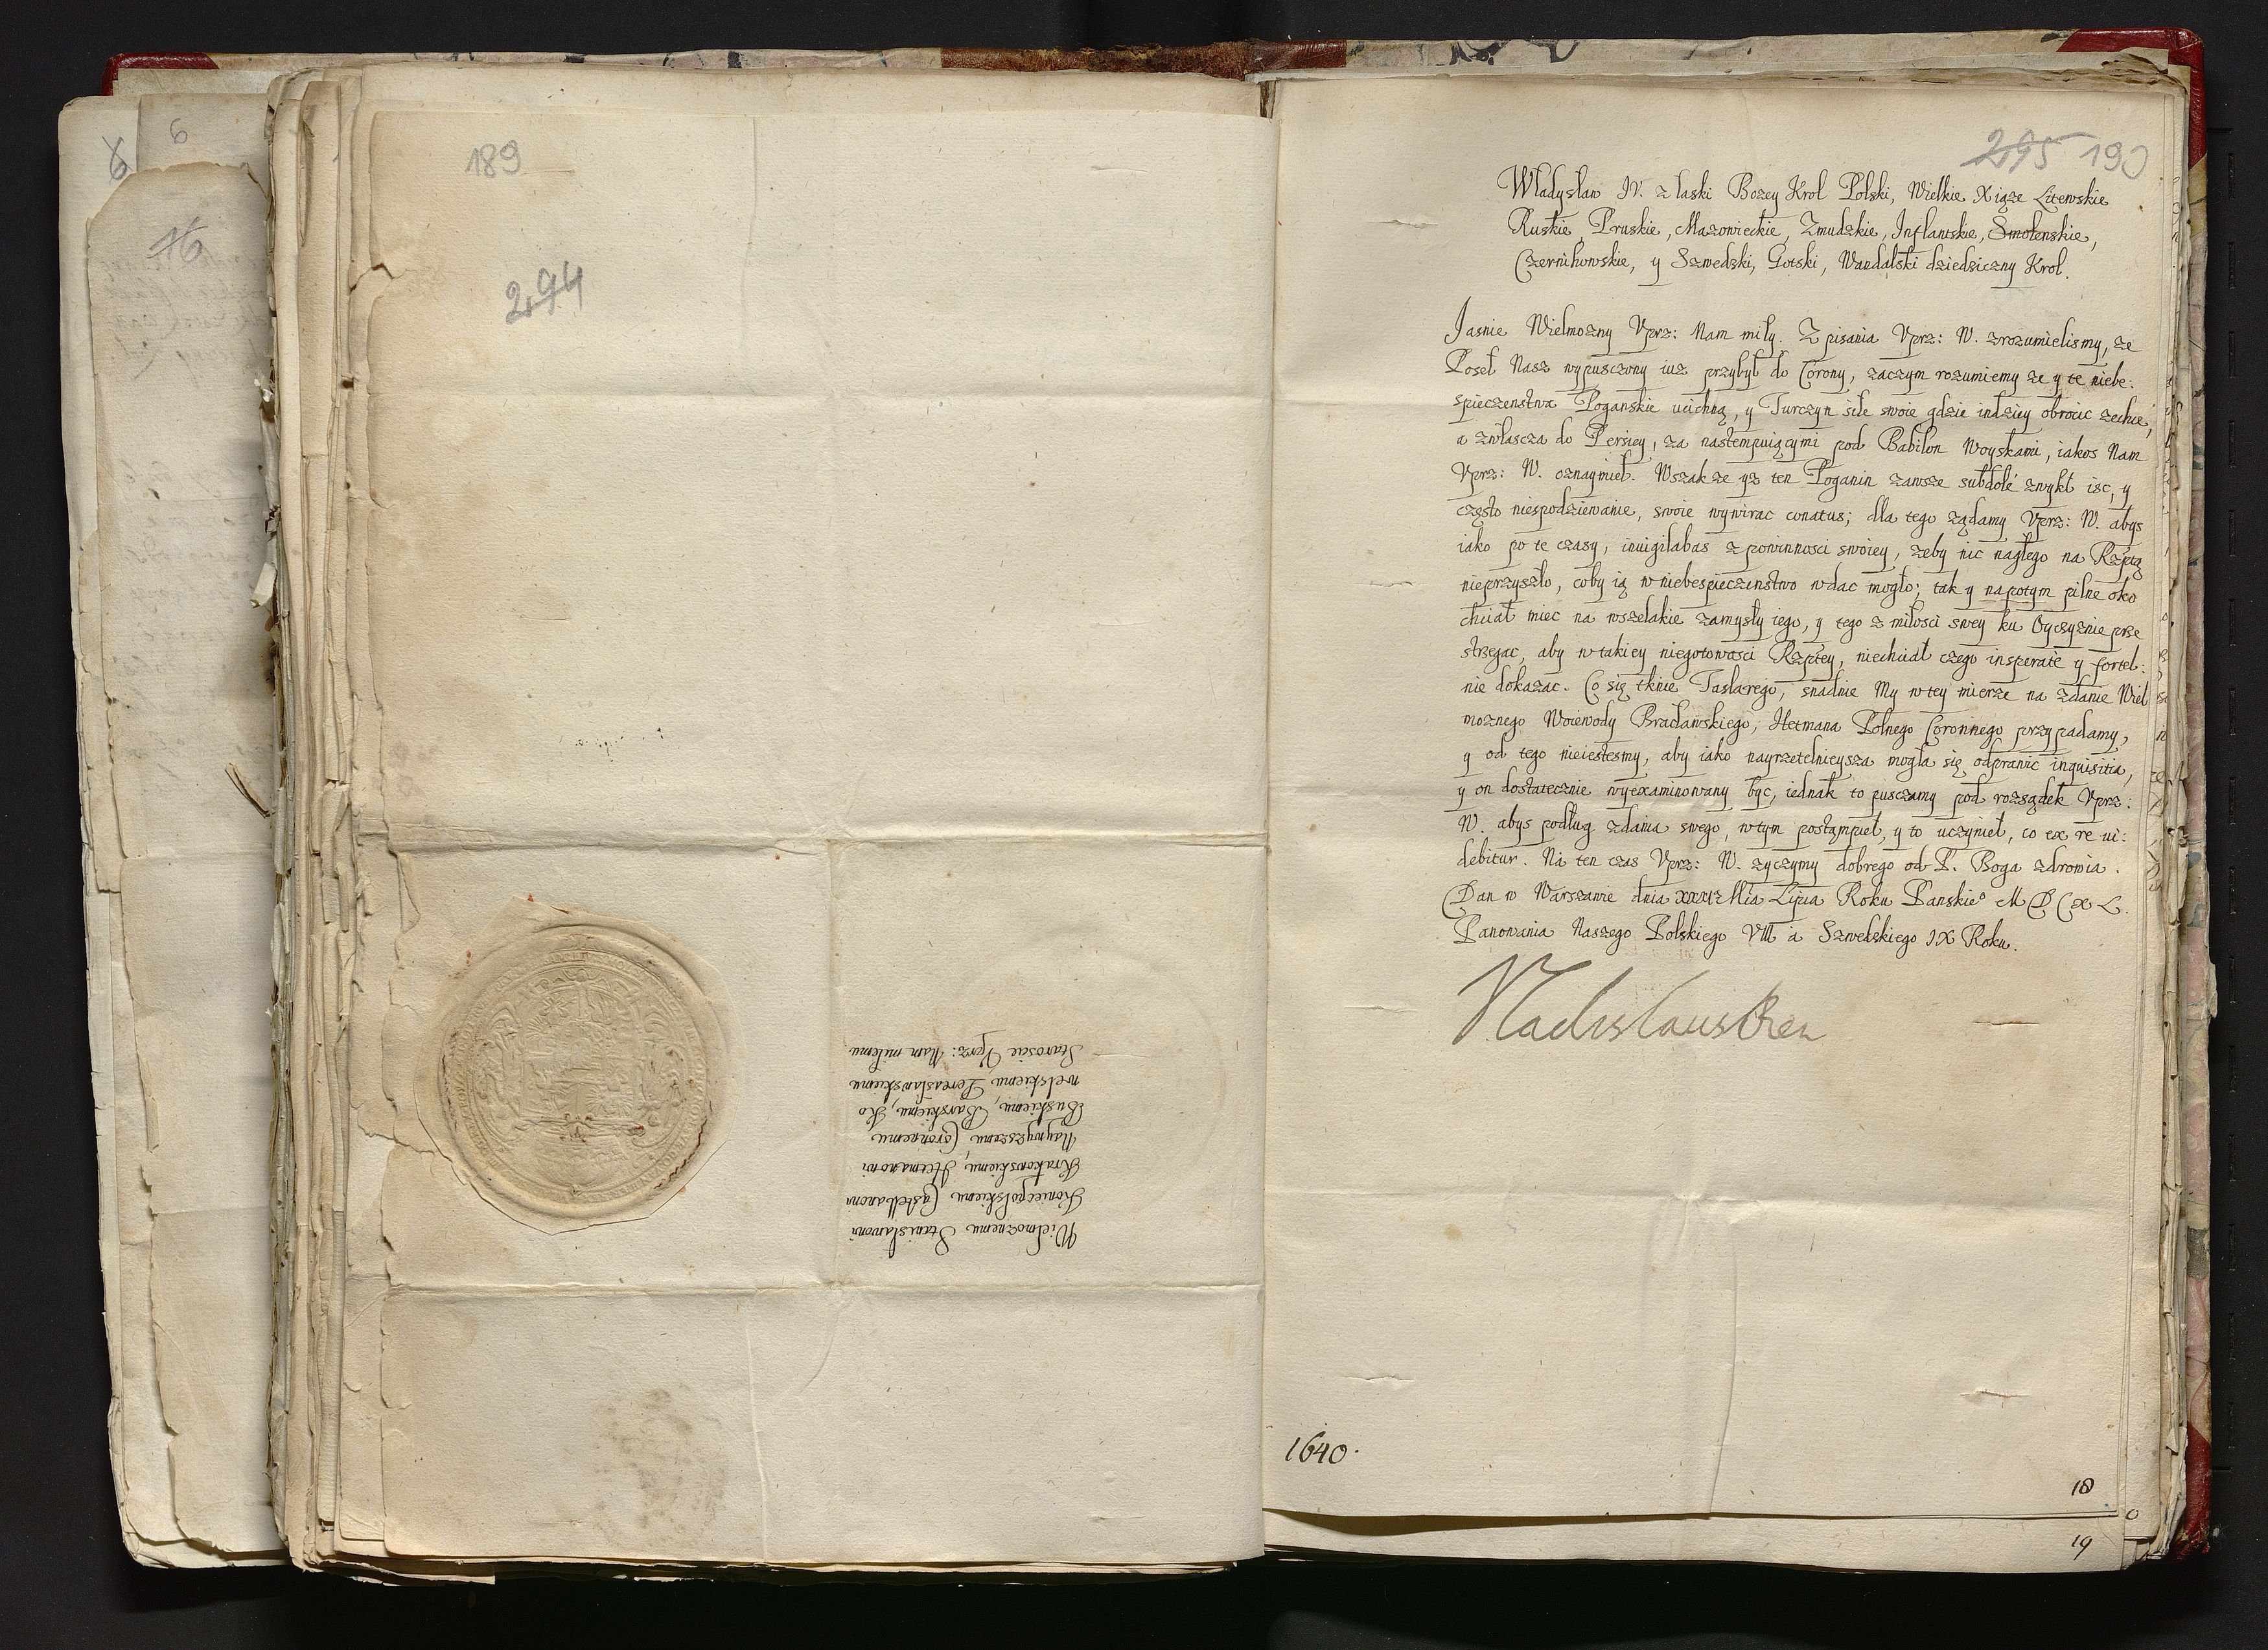 6
6
76
189
294
Wielmoznemu Stanislawowi
Koniecpolskiemu Castellanowi
Krakowskiemu, Hetmanowi
Naywyzszemu Coronnemu
Buskiemu, Barskiemu, Ko
welskiemu, Pereasławskiemu
Staroscie Vprz: Nam miłemu
295 190
Władysław IV. z łaski Bozey Krol Polski, Wielkie Xiąze Litewskie
Ruskie, Pruskie, Mazowieckie, Zmudzkie, Inflantskie, Smolenskie,
Czernihowskie, y Szwedzki, Gotski, Wandalski dziedziczny Krol.
Jasnie Wielmozny Vprz: Nam miły. Z pisania Vprz: W. zrozumielismy, ze
Poseł Nasz wypusczony iuz przybył do Corony, zaczym rozumiemy ze y te niebe:
spieczenstwa Poganskie ucichną, y Turczyn siłe swoie gdzie indziey obrocic zechce,
a zwłascza do Persiey, za nastempuiącymi pod Babilon Woyskami, iakos Nam
Vprz: W. oznaymieł. Wszakze yz ten Poganin zawsze subdolé zwykł isc, y
często niespodziewanie, swoie wywirac conatus; dla tego ządamy Vprz: W. abys
iako po te czasy, inuigilabas z powinnosci swoiey, zeby nic nagłego na Rzptą
nieprzyszło, coby ią w niebespieczenstwo wdac mogło; tak y napotym pilne oko
chciał miec na wszelakie zamysły iego, y tego z miłosci swey ku Oyczyznie prze
strzegac, aby w takiey niegotowosci Rzptey, niechciał czego insperate y fortel:
nie dokazac. Co się tknie Taslarego, snadnie My w tey mierze na zdanie Wiel
moznego Woiewody Bracławskiego, Hetmana Polnego Coronnego przypadamy,
y od tego nieiestesmy, aby iako nayrzetelnieysza mogła się odprawic inquisitia,
y on dostatecznie wyexaminowany byc, iednak to pusczamy pod rozsądek Vprz:
W. abys podług zdania swego, w tym postąmpieł, y to uczynieł, co ex re ui:
debitur. Na ten czas Vprz: W. zyczymy dobrego od P. Boga zdrowia.
Dan w Warszawie dnia Mia Lipca Roku Panskie° M D C x L.
Panowania Naszego Polskiego VIII a Szwedzkiego IX Roku.
Vladislaus Rex
1640.
18
19